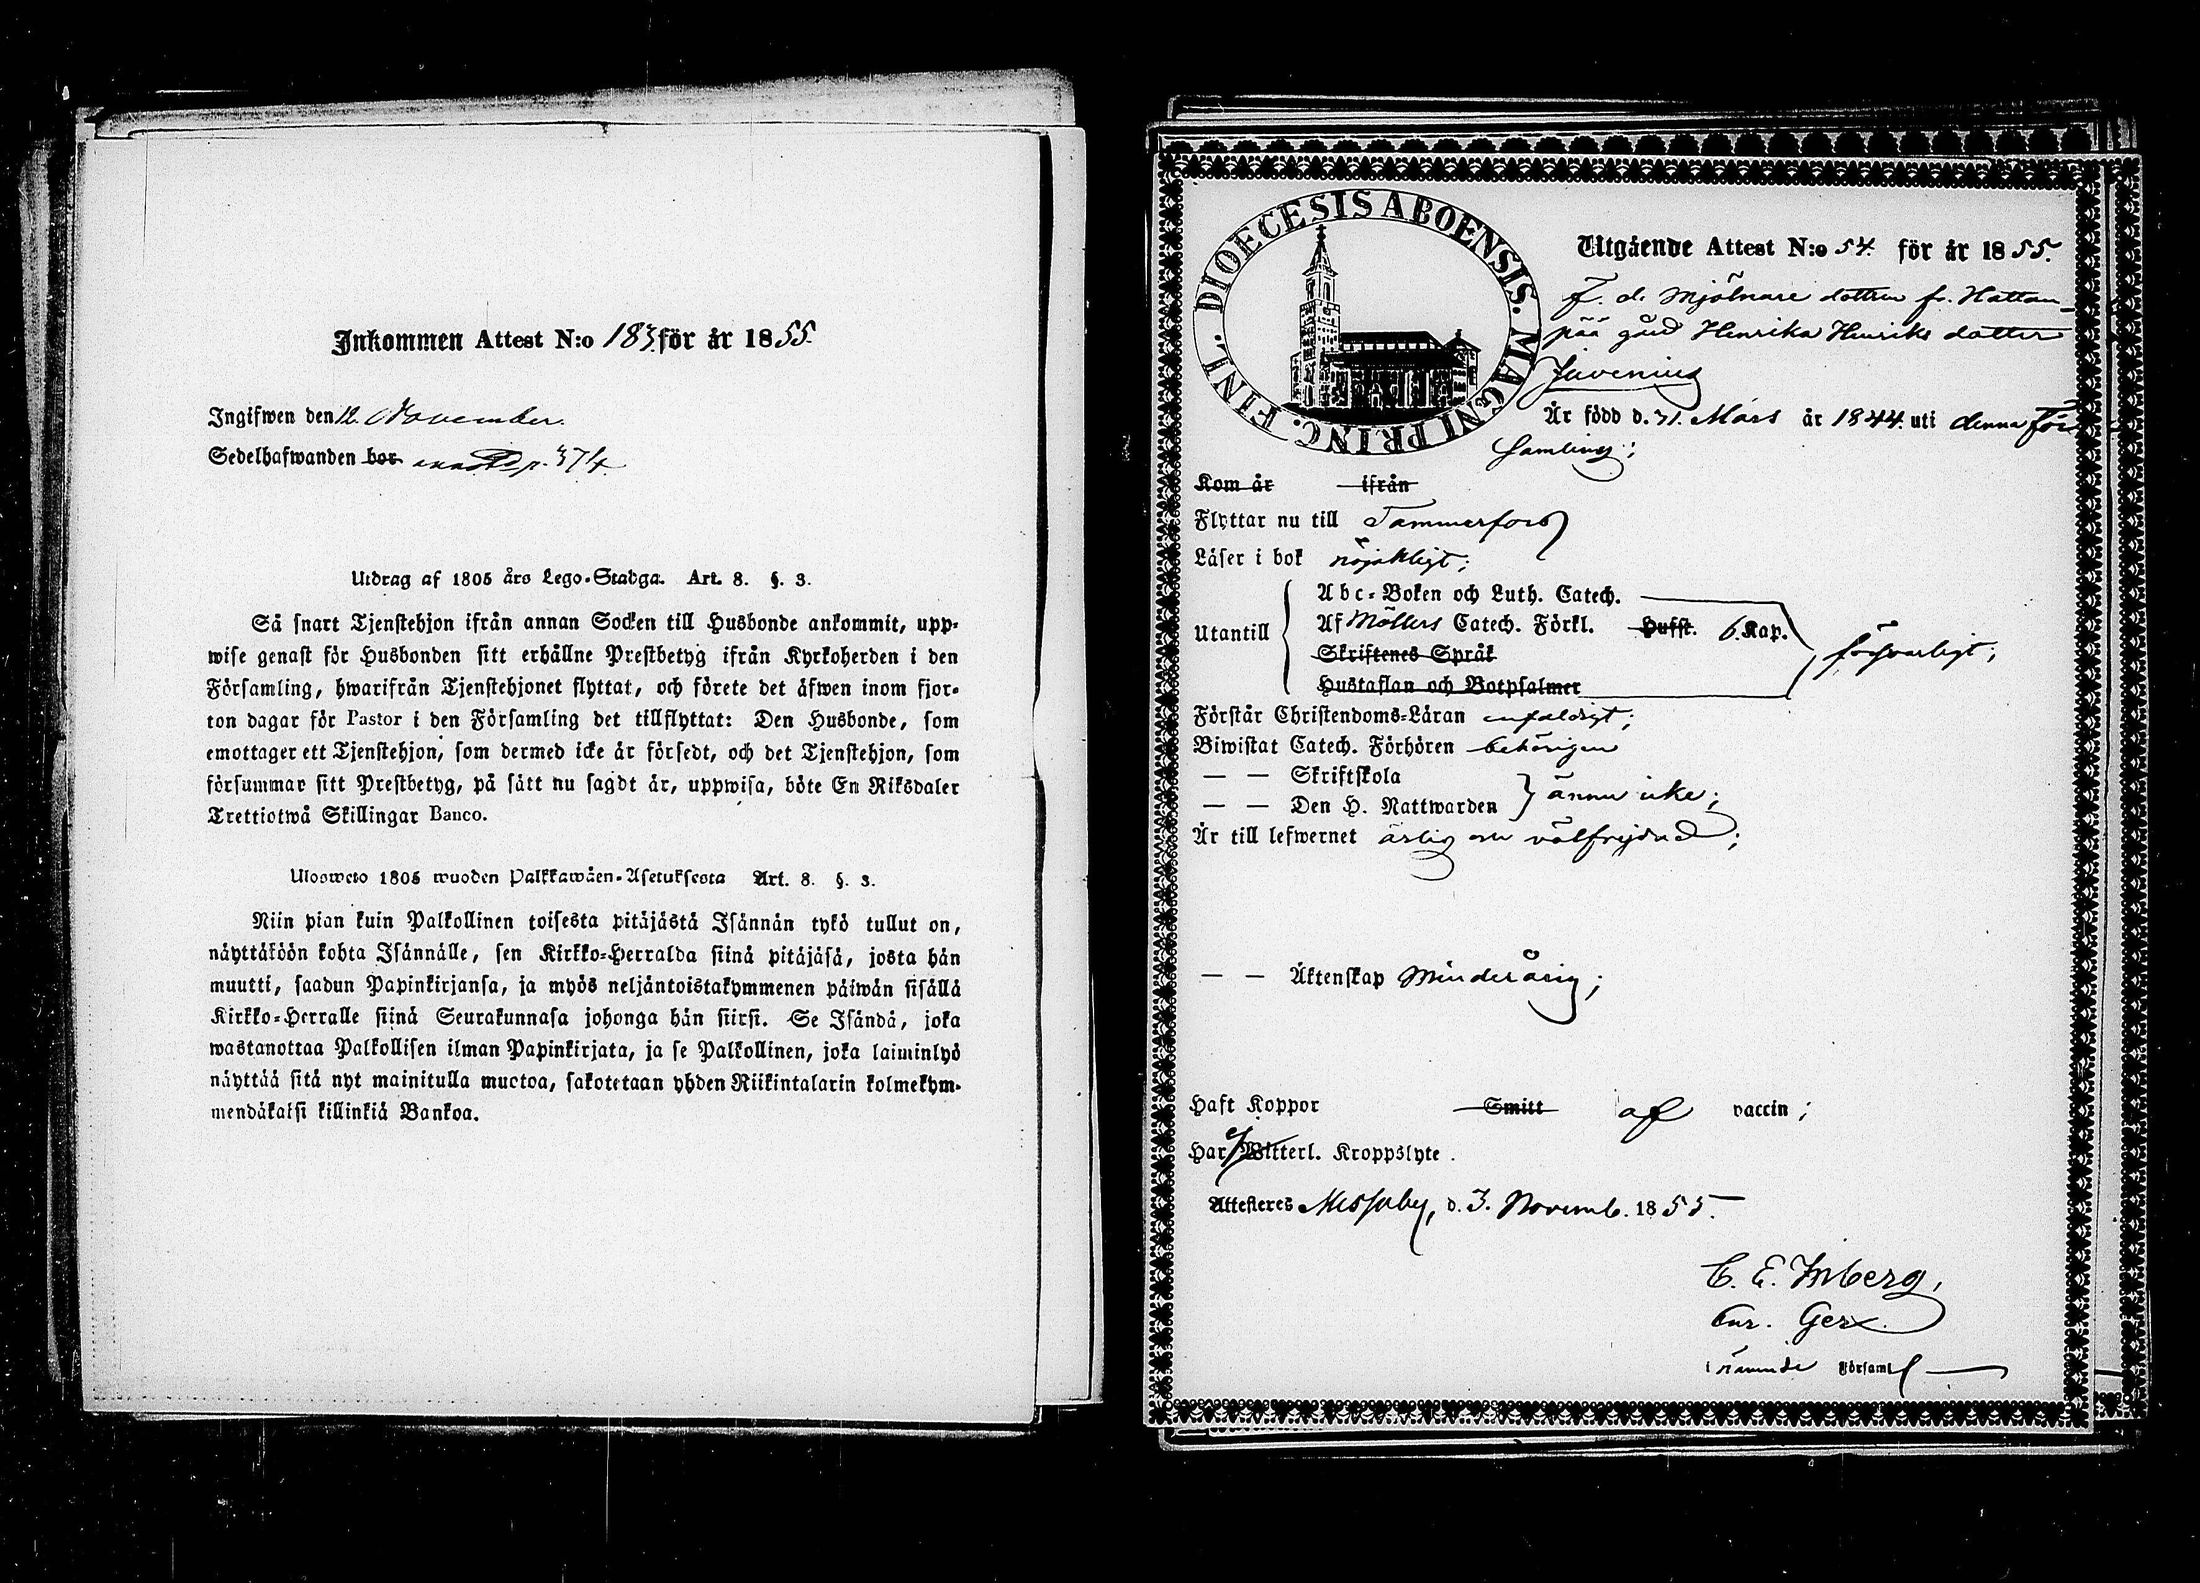 Inkommen Attest N:o 183 för år 1855.
Ingifwen den 12. November.
Sedelhafwanden bor p. 374.
Utdrag af 1805 års Lego-Stadga. Art. 8. §. 3.
Så snart Tjenstehjon ifrån annan Socken till Husbonde ankommit, upp-
wise genast för Husbonden sitt erhållne Prestbetyg ifrån Kyrkoherden i den
Församling, hwarifrån Tjenstehjonet flyttat, och förete det äfwen inom fjor-
ton dagar för Pastor i den Församling det tillflyttat: Den Husbonde, som
emottager ett Tjenstehjon, som dermed icke är försedt, och det Tjenstehjon, som
försummar sitt Prestbetyg, på sätt nu sagdt är, uppwisa, böte En Riksdaler
Trettiotwå Skillingar Banco.
Ulosweto 1805 wuoden Palkkawäen-Asetuksesta Art. 8. §. 3.
Niin pian kuin Palkollinen toisesta pitäjästä Isännän tykö tullut on,
näyttäköön kohta Isännälle, sen Kirkko-Herralda siinä pitäjäsä, josta hän
muutti, saadun Papinkirjansa, ja myös neljäntoistakymmenen päiwän sisällä
Kirkko-Herralle siinä Seurakunnasa johonga hän siirsi. Se Isändä, joka
wastanottaa Palkollisen ilman Papinkirjata, ja se Palkollinen, joka laiminlyö
näyttää sitä nyt mainitulla muotoa, sakotetaan yhden Riikintalarin kolmekym-
mendäkaksi killinkiä Bankoa.
DIOECESIS ABOENSIS. MAGNI PRINC. FINL.
Utgående Attest N:o 54. för år 1855.
F. d. Mjölnare dottren fr. Hattan-
pää gård Henrika Henriks dotter
Juvenius
Är född d. 31. Mars år 1844. uti denna för-
samling;
Kom år ifrån
Flyttar nu till Tammerfors
Läser i bok nöjaktligt;
Utantill
Abc-Boken och Luth. Catech.
Af Möllers Catech. Förkl. Hufst. 6. Kap.
Skriftenes Språk
Hustaflan och Botpsalmer
försvarligt;
Förstår Christendoms-Läran enfaldigt;
Biwistat Catech. Förhören behörigen
— — Skriftskola
— — Den H. Nattwarden
ännu icke;
Är till lefwernet ärlig och välfrejdad;
— — Äktenskap Minderårig;
Haft Koppor Smitt af vaccin;
Har ej Witterl. Kroppslyte.
Attesteres Messuby, d. 3. Novemb. 1855.
C. E. Inberg,
Cur. Ger.
i nämnde Församl